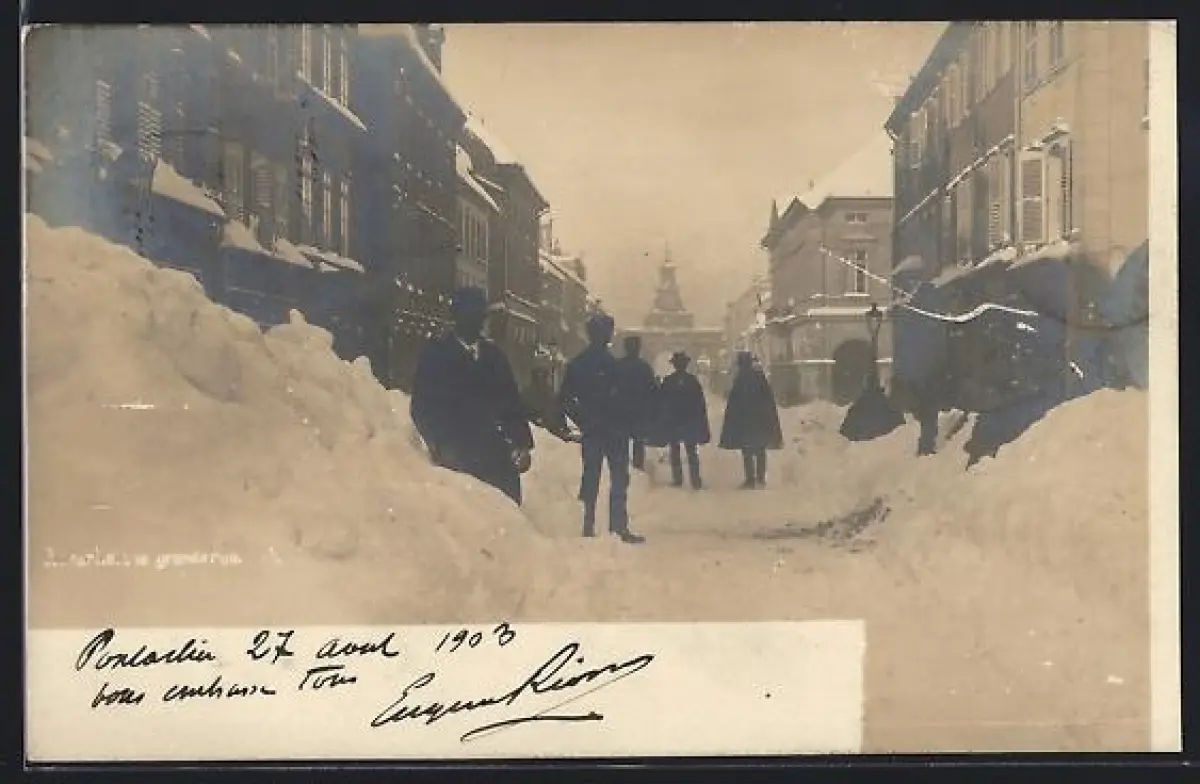 grande rue.
Pontarlier 27 avril 1903
vous embrasse Tous
Eugène